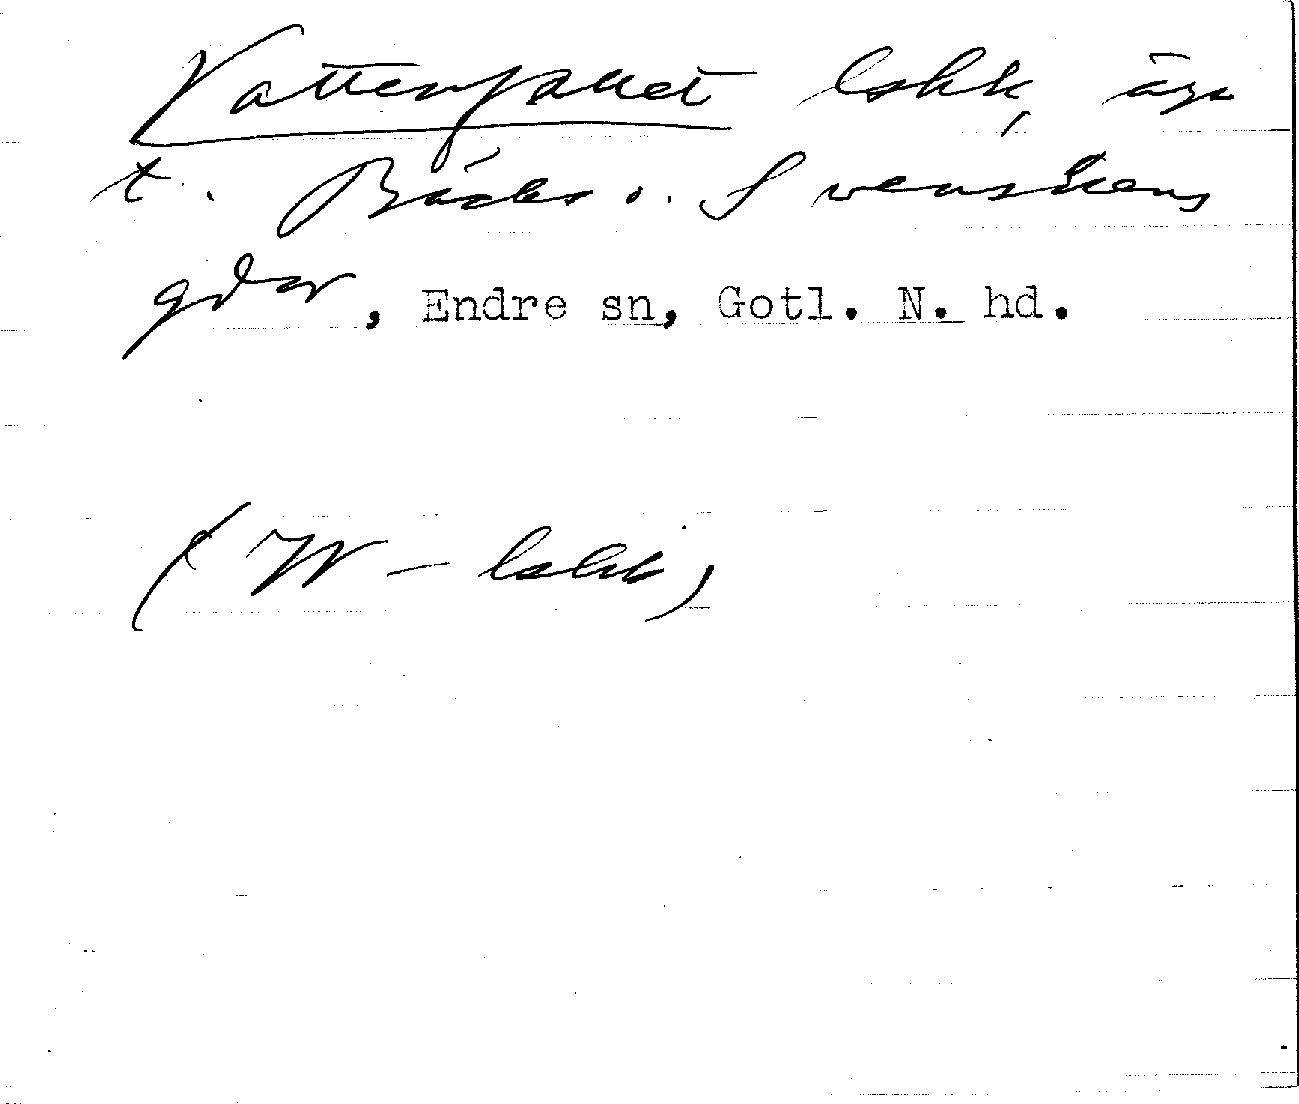 Vattenfallet lokk, äga
t. Bäcks o. Svenskens
gdar, Endre sn, Gotl. N. hd.
(W – lokk)